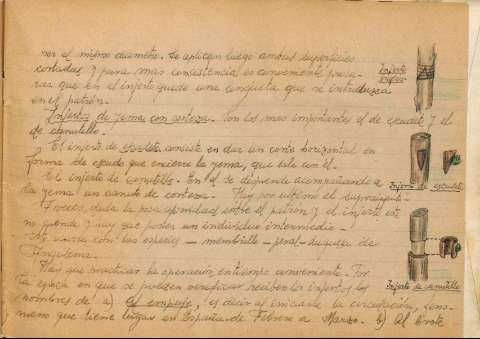 ner el mismo diametro. Se aplican luego ambas superficies
cortadas y para mas consistencia es conveniente
que en el injerto quede una lengueta que se introduzca
en el patrón.
Injertos de yema con corteza. Son los mas importantes el de escudete y el
de canutillo.
El injerto de escudete consiste en dar un corte horizontal en
forma de escudo que encierre la yema, que sale con el.
El injerto de canutillo. En el se desprende acompañando a
la yema un canuto de corteza. Hay por ultimo el
F veces, dada la poca afinidad entre el patron y el injerto este
no prende y hay que poner un individuo intermedio.-
con las especies - membrillo - peral - duquesa de
Angulema.
Hay que practicar la operación en tiempo conveniente. Por
la época en que se pueden verificar reciben los injertos los
nombres de a) al empuje, es decir al iniciarse la circulación, feno-
meno que tiene lugar en España de Febrero a Marzo. b) Al brote
Injerto
Injerto de escudete
Injerto de canutillo